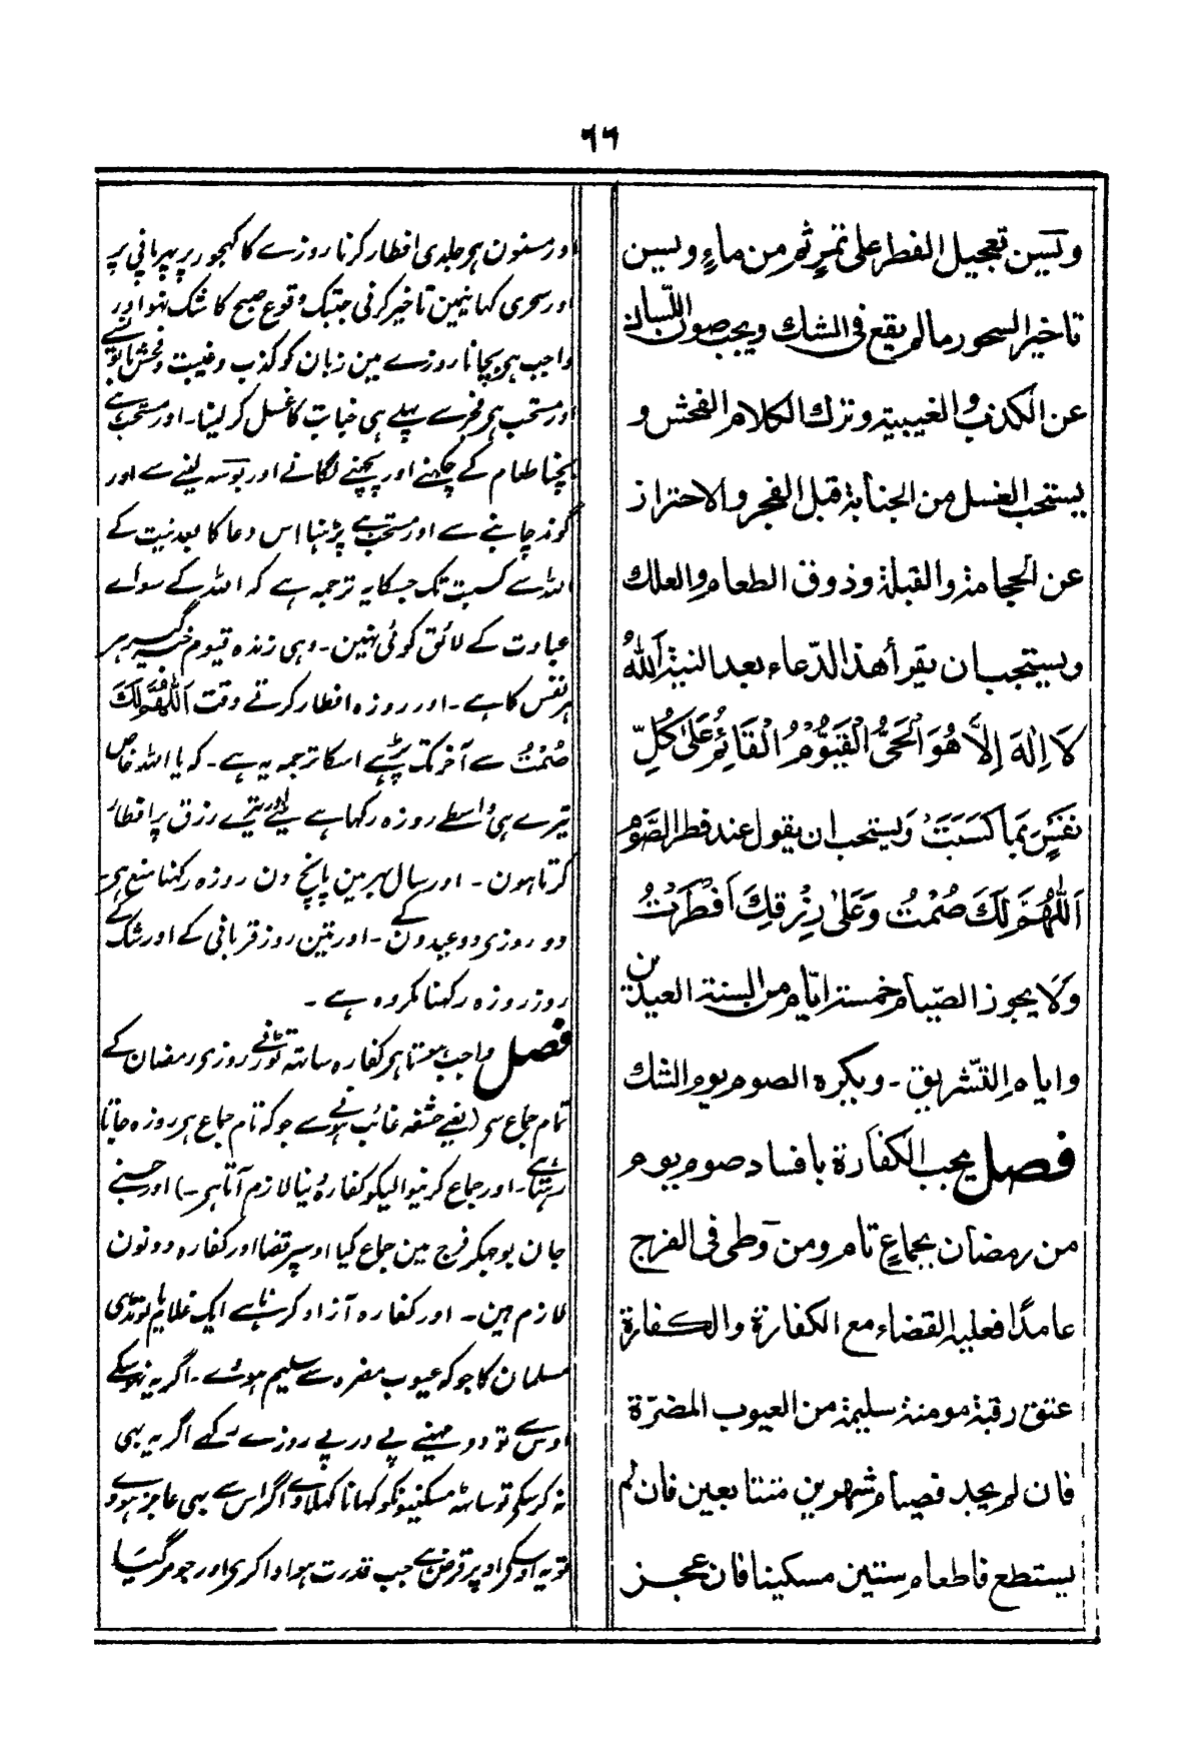 ٦٦
ويسن تعجيل الفطر على تمرٍ ثم من ماءٍ ويسن
تاخير السحور مالم يقع فى الشك ويجب صون اللسان
عن الكذب والغيبية وترك الكلام الفحش و
يستحب الغسل من الجنابة قبل الفجر والاحتراز
عن الحجامة والقبلة وذوق الطعام والعلك
ويستحب ان يقرأ هذا الدّعاء بعد النية اَللهُ
لَا اِلٰهَ اِلَّا هُوَ الْحَىُّ الْقَيُّوْمُ الْقَائِمُ عَلىٰ كُلِّ
نَفْسٍ بِمَا كَسَبَتْ وَيستحب ان يقول عند فطر الصّوم
اَللّٰهُمَّ لَكَ صُمْتُ وَعَلىٰ رِزْقِكَ اَفْطَرْتُ
وَلَا يجوز الصّيام خمسة ايّام من السنة العيدين
وايام التّشريق ۔ ويكره الصوم يوم الشك
فصل يجب الكفارة بافساد صوم يوم
من رمضان بجماعٍ تام ومن وطى فى الفرج
عامدًا فعليه القضاء مع الكفارة والكفارة
عتق رقبة مومنة سليمة من العيوب المضرّة
فان لم يجد فصيام شهرين متتابعين فان لم
يستطع فاطعام ستين مسكينا فان عجز
اور مسنون ہر جلدی افطار کرنا روزے کا کہجور پر پہر پانی پر
اور سحری کہانیمین تاخیر کرنی جبتک وقوع صبح کا شک نہو اور
واجب ہر بچانا روزے مین زبان کو کذب وغیبت وفحش باتوں سے
اور مستحب ہر فجر سے پہلے ہی جنابت کا غسل کر لینا۔ اور مستحب ہے
بچنا طعام کے چکہنے اور پچہنے لگانے اور بوسہ لینے سے اور
گوند چابنے سے اور مستحب ہے پڑہنا اس دعا کا بعد نیت کے
اللہ سے کسبت تک جسکا یہ ترجمہ ہے کہ اللہ کے سوائے
عبادت کے لائق کوئی نہین۔ وہی زندہ قیوم خبرگیر ہر
ہر نفس کا ہے۔ اور روزہ افطار کرتے وقت اَللّٰهُمَّ لَكَ
صُمْتُ سے آخر تک پڑہے اسکا ترجمہ یہ ہے۔ کہ یا اللہ خاص
تیرے ہی واسطے روزہ رکہا ہے مینے اور تیرے رزق پر افطار
کرتا ہون۔ اور سال بہر مین پانچ دن روزہ رکہنا منع ہر
دو روز دو عیدون کے۔ اور تین روز قربانی کے اور شک کے
روز روزہ رکہنا مکروہ ہے۔
فصل واجب ہوتا ہر کفارہ ساتہ توڑنے روزہ رمضان کے
تمام جماع سے (یعنے حشفہ غائب ہونے سے جو کہ تام جماع ہر روزہ جاتا
رہتا ہے۔ اور جماع کرنیوالیکو کفارہ دینا لازم آتا ہر۔) اور جسنے
جان بوجہکر فرج مین جماع کیا اوسپر قضا اور کفارہ دونون
لازم ہین۔ اور کفارہ آزاد کرنا ہے ایک غلام یا لونڈی
مسلمان کا جو کہ عیوب مضرہ سے سلیم ہووے۔ اگر یہ نہوسکے
اوس سے تو دو مہینے پے در پے روزے رکہے اگر یہ بہی
نہ کر سکے تو ساٹہ مسکینونکو کہانا کہلاوے اگر اس سے بہی عاجز ہووے
تو یہ اوسکے اوپر قرض ہے جب قدرت ہو ادا کرے اور جو مر گیا